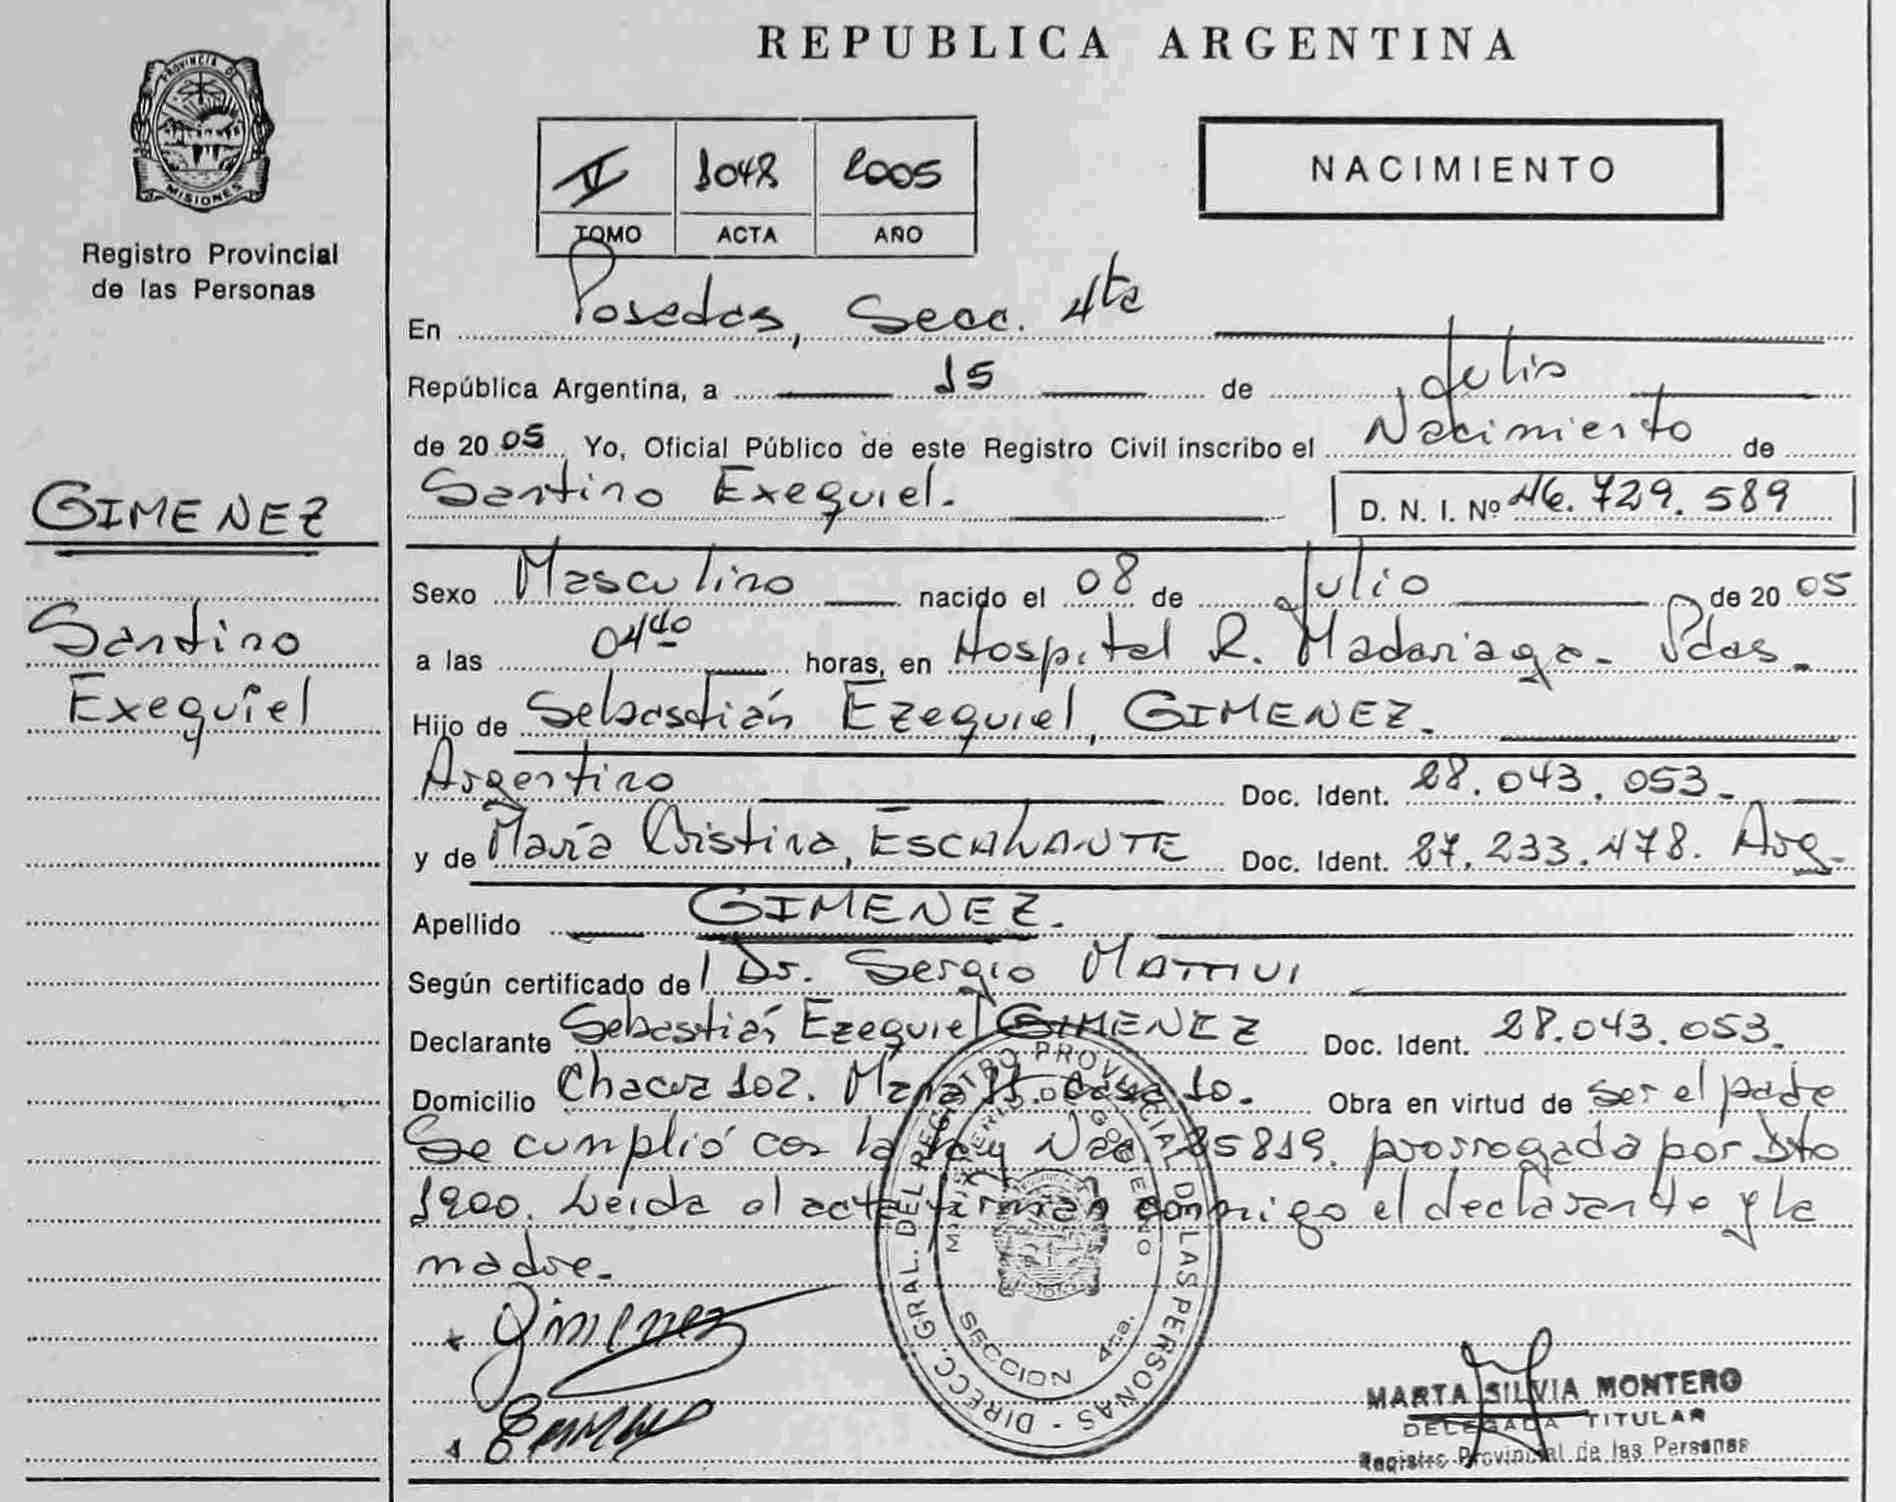 REPUBLICA ARGENTINA
PROVINCIA DE
MISIONES
Registro Provincial
de las Personas
1048 2005
TOMO ACTA AÑO
NACIMIENTO
En Posadas, Secc. 4ta
República Argentina, a 15 de Julio
de 2005 Yo, Oficial Público de este Registro Civil inscribo el Nacimiento de
Santino Exequiel.
D. N. I. Nº 46.729.589
GIMENEZ
Santino
Exequiel
Sexo Masculino nacido el 08 de Julio de 2005
a las 04 40 horas, en Hospital R. Madariaga - Pdas.
Hijo de Sebastián Ezequiel, GIMENEZ.
Argentino Doc. Ident. 28.043.053.
y de María Cristina, ESCALANTE Doc. Ident. 27.233.478. Arg.
Apellido GIMENEZ.
Según certificado de Dr. Sergio
Declarante Sebastián Ezequiel GIMENEZ Doc. Ident. 28.043.053.
Domicilio Chacra 102. Mana 11. Casa 10. Obra en virtud de ser el padre
Se cumplió con la Ley Nac. 25819. prorrogada por Dto
1900. Leída el acta firman conmigo el declarante y la
madre.
Gimenez
DIRECC. GRAL. DEL REGISTRO PROVINCIAL DE LAS PERSONAS -
MINISTERIO DE GOBIERNO
SECCION 4ta.
MARTA SILVIA MONTERO
DELEGADA TITULAR
Registro Provincial de las Personas